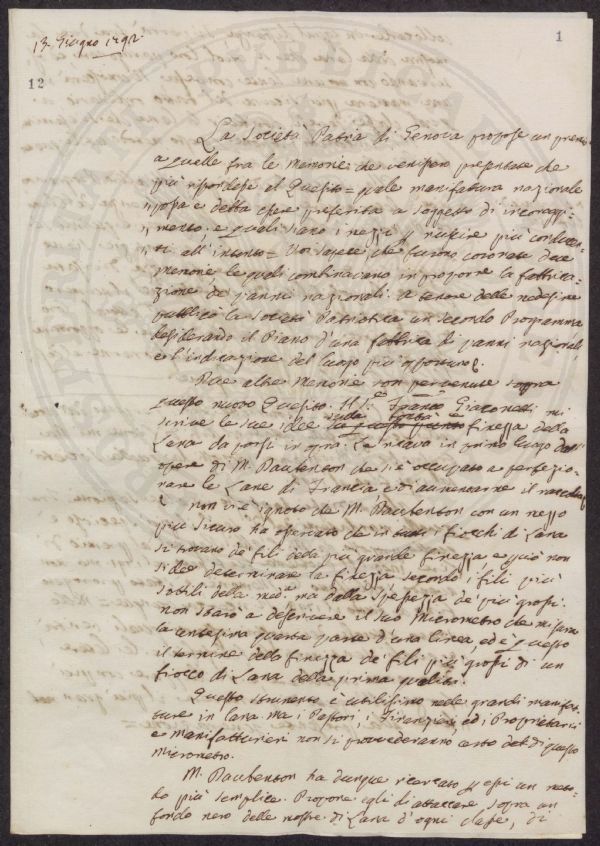 13. Giugno 1792
1
12
La Società Patria di Genova propose un premio
a quelle fra le Memorie che venissero presentate che
più rispondesse al Quesito = quale manifattura nazionale
possa e debba essere preferita a soggetto di incoraggi-
mento, e quali siano i mezzi per riuscire più conducen-
ti all'intento = Voi sapete che furono coronate due
memorie le quali combinavano in proporre la fabbrica-
zione de' panni nazionali. A tenore delle medesime
pubblicò la Società Patriotica un secondo Programma
desiderando il Piano d'una fabbrica di panni nazionali,
e l'indicazione del luogo più opportuno.
Due altre Memorie son pervenute sopra
questo nuovo Quesito. Il Sr. Franco Giacometti mi
scrive le sue idee sulla finezza della
Lana da porsi in opra. La ricava in primo luogo dall'
opere di M. Daubenton che si è occupato a perfezio-
nare le Lane di Francia e di aumentarne il
non vi è ignoto che M. Daubenton con un mezzo
più sicuro ha osservato che in tutti i fiocchi di Lana
si trovano de' fili della più grande finezza, e quì non
si dee determinare la finezza secondo i fili più
sottili della med.a ma dalla spessezza de' più grossi.
non starò a descrivere il suo Micrometro che misura
la centesima quarta parte d'una linea, ed è questo
il termine della finezza de' fili più grossi di un
fiocco di Lana della prima qualità.
Questo strumento è utilissimo nelle grandi manifat-
ture in Lana. ma i Pastori, i ed i Proprietarii
e manifatturieri non si provvederanno certo di questo
micrometro.
M. Daubenton ha dunque ricercato per essi un meto-
do più semplice. Propone egli di attaccare sopra un
fondo nero delle mostre di Lana d'ogni classe, di